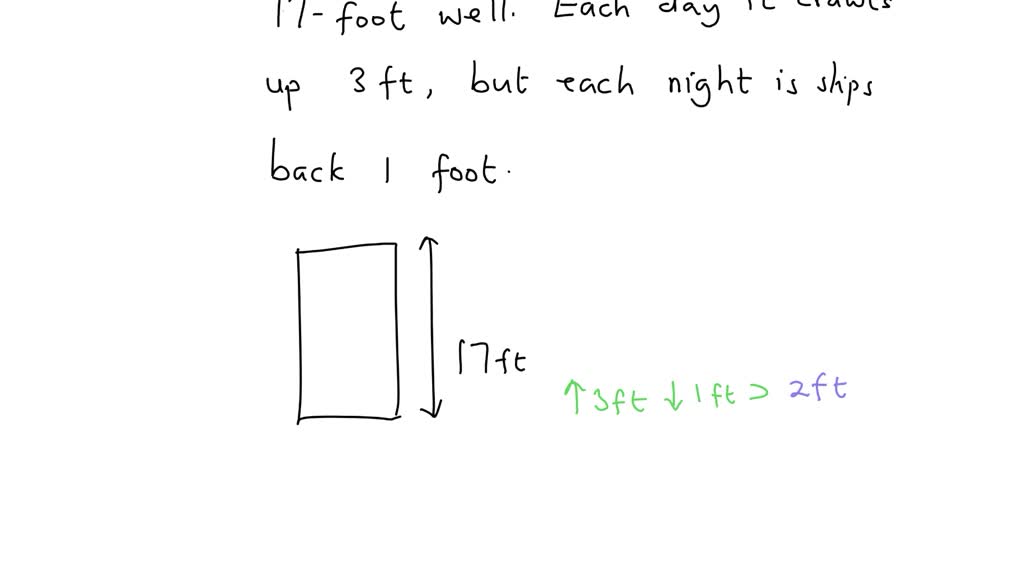 17-foot well. Each day it crawls
up 3 ft, but each night is slips
back 1 foot.
17ft
↑3ft ↓1ft ⊃ 2ft